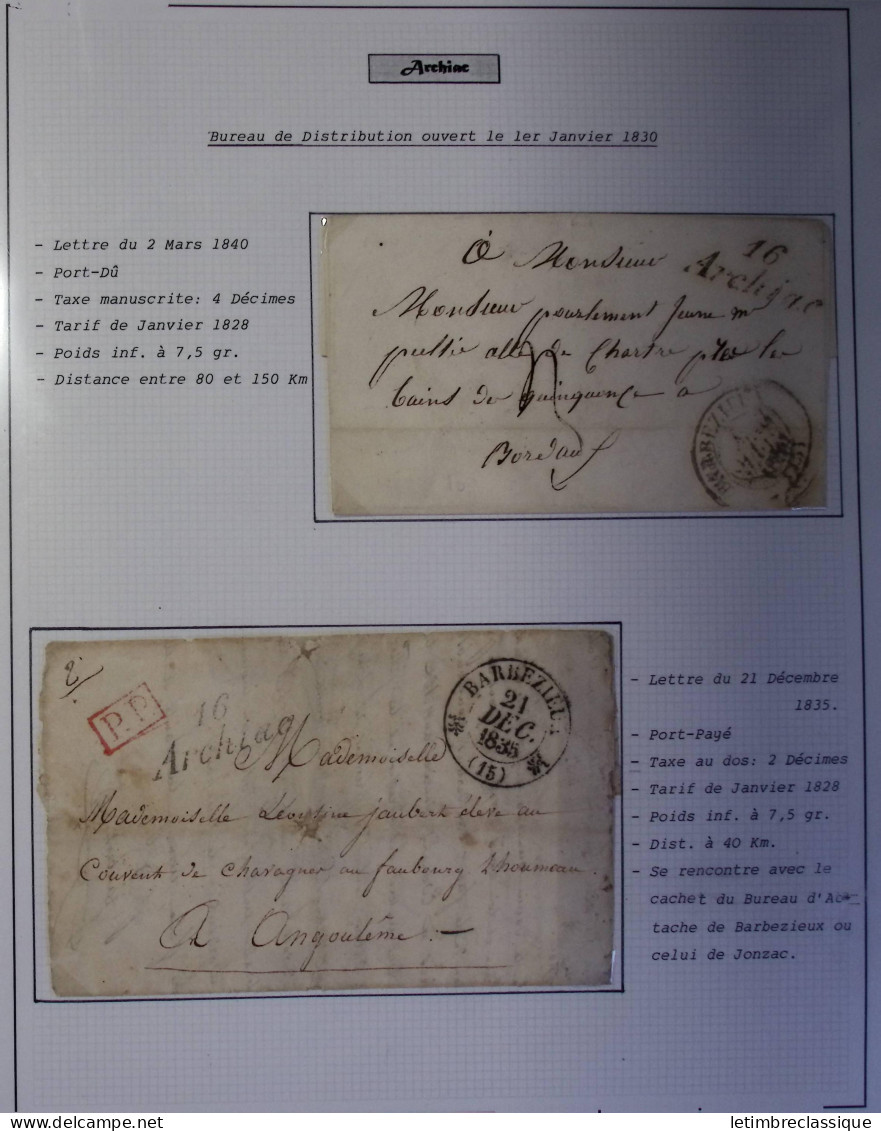 Archiac
Bureau de Distribution ouvert le 1er Janvier 1830
- Lettre du 2 Mars 1840
- Port-Dû
- Taxe manuscrite: 4 Décimes
- Tarif de Janvier 1828
- Poids inf. à 7,5 gr.
- Distance entre 80 et 150 Km
16
Archiac
Monsieur
Monsieur jeune
de Chartre
bains de a
Bordaux
BARBEZIEUX
P.P.
16
Archiac
BARBEZIEUX
21
DEC.
1835
(15)
Mademoiselle
Mademoiselle jaubert élève au
Couvent de Chavagner au faubourg Lhoumeau
A Angoulême
- Lettre du 21 Décembre
1835.
- Port-Payé
- Taxe au dos: 2 Décimes
- Tarif de Janvier 1828
- Poids inf. à 7,5 gr.
- Dist. à 40 Km.
- Se rencontre avec le
cachet du Bureau d'At-
tache de Barbezieux ou
celui de Jonzac.
letimbreclassique